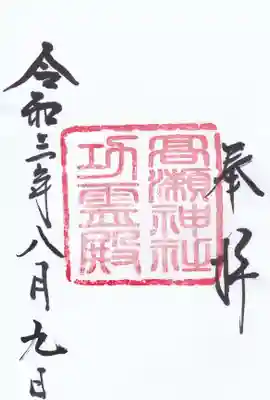 奉拝
高瀬神社
功霊殿
令和三年八月九日